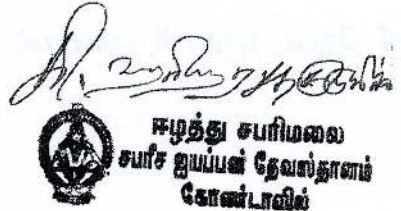 ஈழத்து சபரிமலை
சபரீச ஐயப்பன் தேவஸ்தானம்
கோண்டாவில்